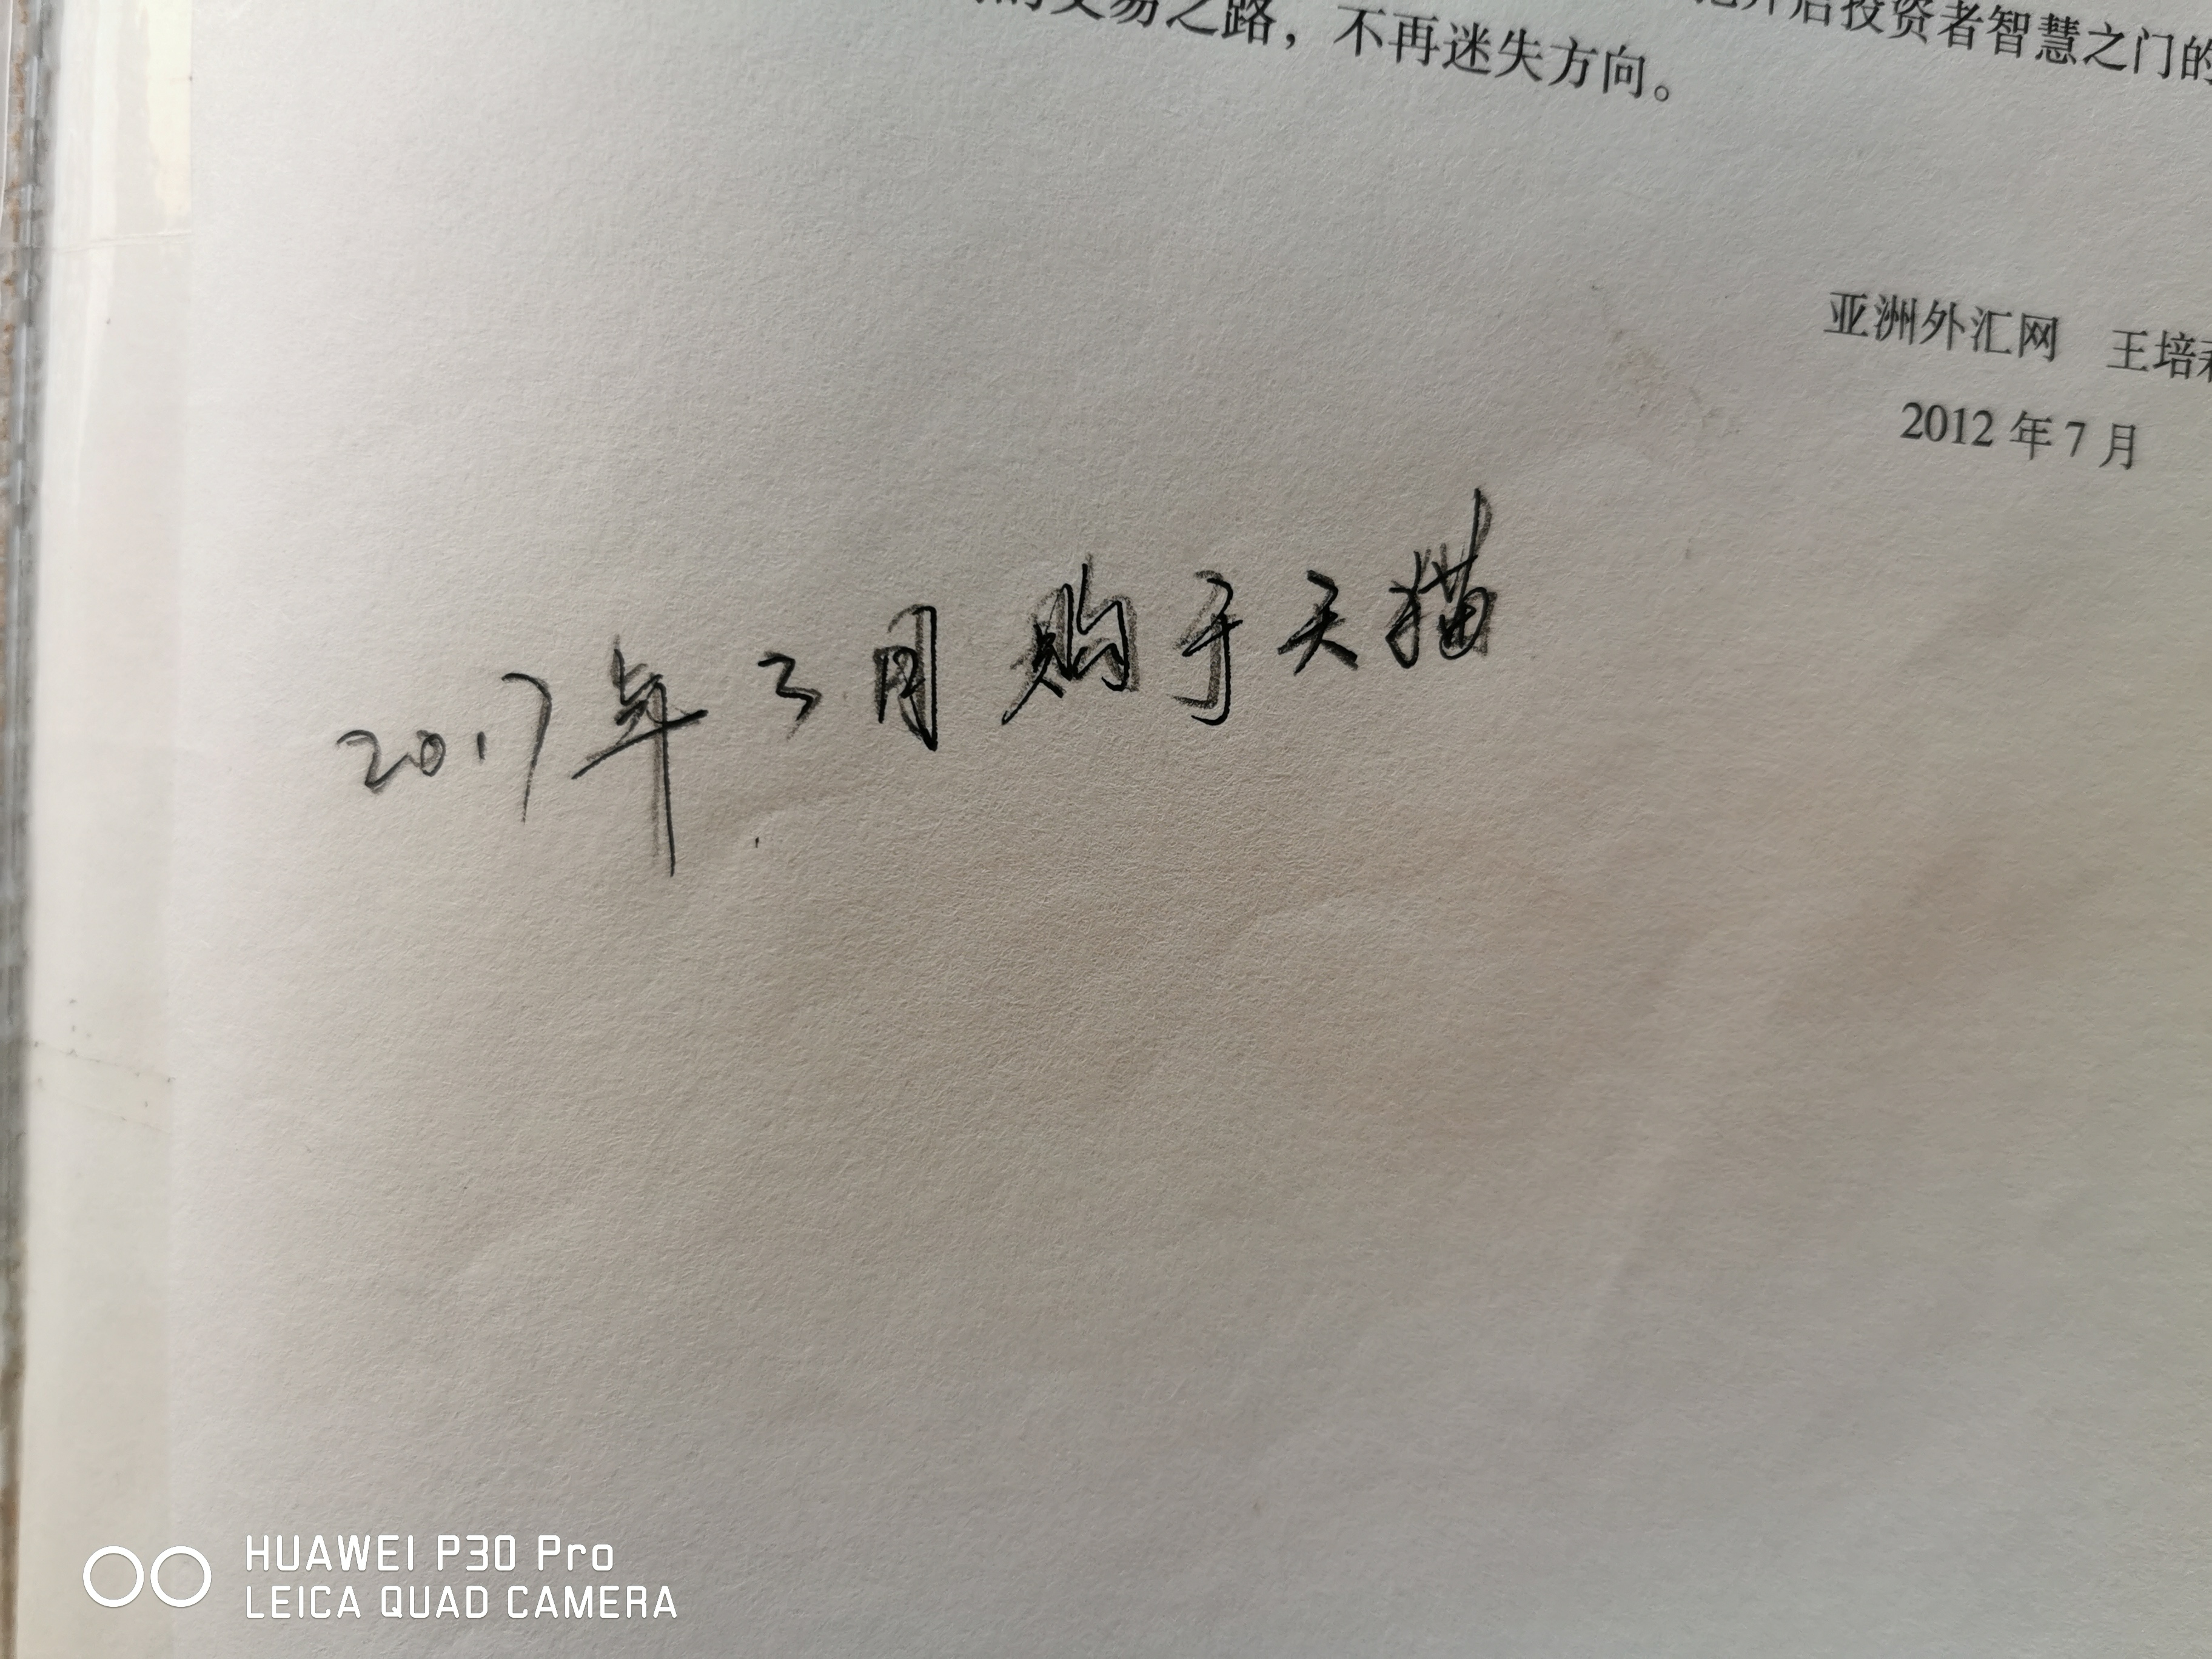 开启投资者智慧之门的
的交易之路，不再迷失方向。
亚洲外汇网 王培
2012 年 7 月
2017年3月购于天猫
HUAWEI P30 Pro
LEICA QUAD CAMERA